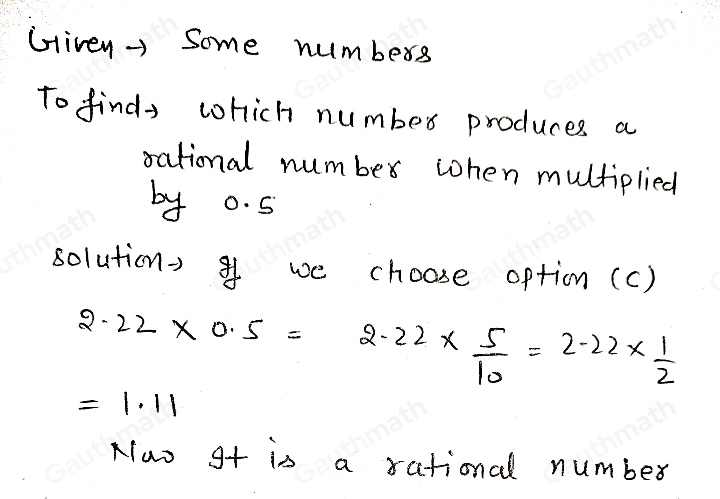 Given → Some numbers
To find → which number produces a
rational number when multiplied
by 0.5
solution → If we choose option (C)
2.22 × 0.5 = 2.22 × 5/10 = 2.22 × 1/2
= 1.11
Now It is a rational number
Gauthmath